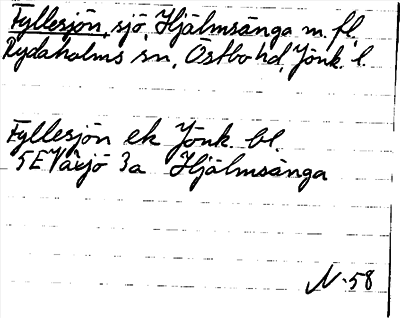 Fyllesjön, sjö, Hjälmsänga m. fl.
Rydaholms sn, Östbo hd, Jönk. l.
Fyllesjön ek Jönk. bl.
5E Växjö 3a Hjälmsänga
N-58